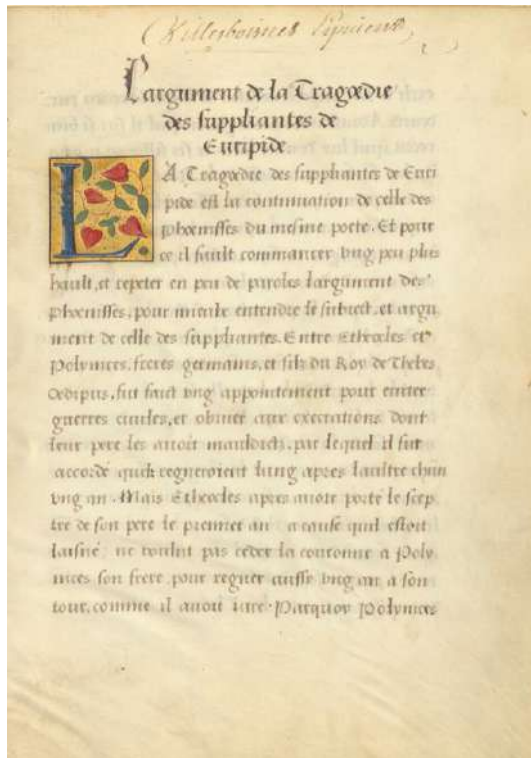 Largument de la Tragœdie
des suppliantes de
Euripide
LA Tragœdie des suppliantes de Euri
pide est la continuation de celle des
phœnisses du mesme poete. Et pour
ce il fault commancer vng peu plus
hault, et repeter en peu de paroles largument des
phœnisses, pour mieulx entendre le subiect, et argu
ment de celle des suppliantes. Entre Etheocles et
Polynices, freres germains, et filz du Roy de Thebes
Œdipus, fut faict vng appointement pour euiter
guerres ciuiles, et obuier aux execrations dont
leur pere les auoit mauldictz, par lequel il fut
accordé quilz regneroient lung apres laultre chũn
vng an. Mais Etheocles apres auoir porté le scep
tre de son pere le premier an a cause quil estoit
laisné ne voulut pas ceder la couronne a Poly
nices son frere, pour regner aussi vng an a son
tour, comme il auoit iuré. Parquoy Polynices